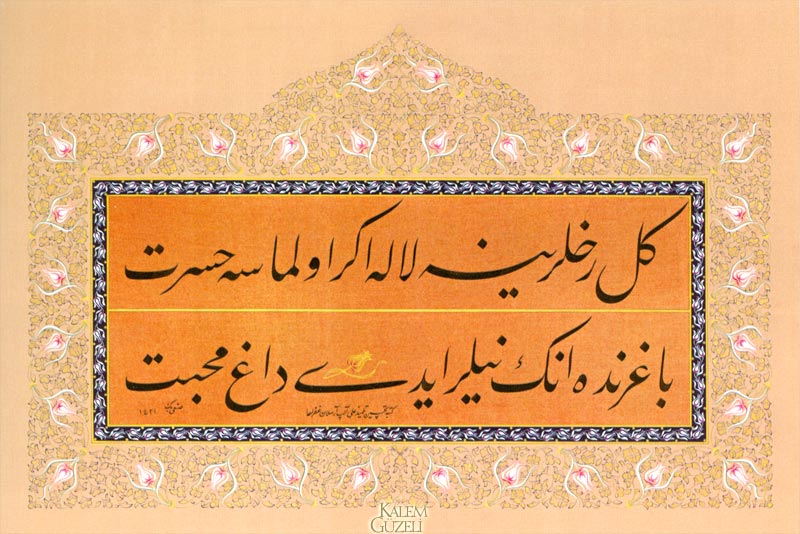 كل رخلرينه لاله اكر اولماسه حسرت
باغرنده انك نيلر ايدى داغ محبت
١٤٢١
KALEM
GÜZELİ